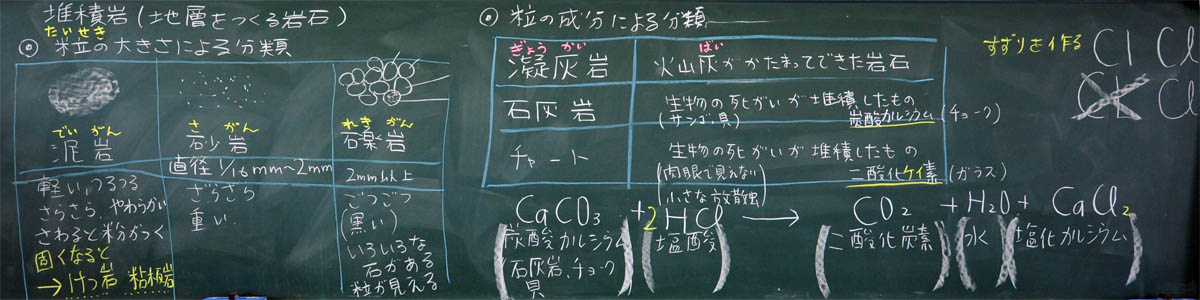 堆積岩(地層をつくる岩石)
たいせき
◎ 粒の大きさによる分類
でい がん
泥岩
さ がん
砂岩
れき がん
礫岩
直径 1/16mm〜2mm
2mm以上
軽い,つるつる
さらさら,やわらかい
さわると粉がつく
固くなると
→けつ岩 粘板岩
ざらざら
重い
ごつごつ
(黒い)
いろいろな
石がある
粒が見える
◎ 粒の成分による分類
ぎょう かい
凝灰岩
ばい
火山灰がかたまってできた岩石
石灰岩
生物の死がいが堆積したもの
(サンゴ,貝)
炭酸カルシウム(チョーク)
チャート
生物の死がいが堆積したもの
(肉眼で見えない
小さな放散虫)
二酸化ケイ素(ガラス)
すずりを作る
Cl Cl
CL Cl
CaCO3 + 2HCl → CO2 + H2O + CaCl2
(炭酸カルシウム
石灰岩,チョーク
貝)
(塩酸)
(二酸化炭素)
(水)
(塩化カルシウム)